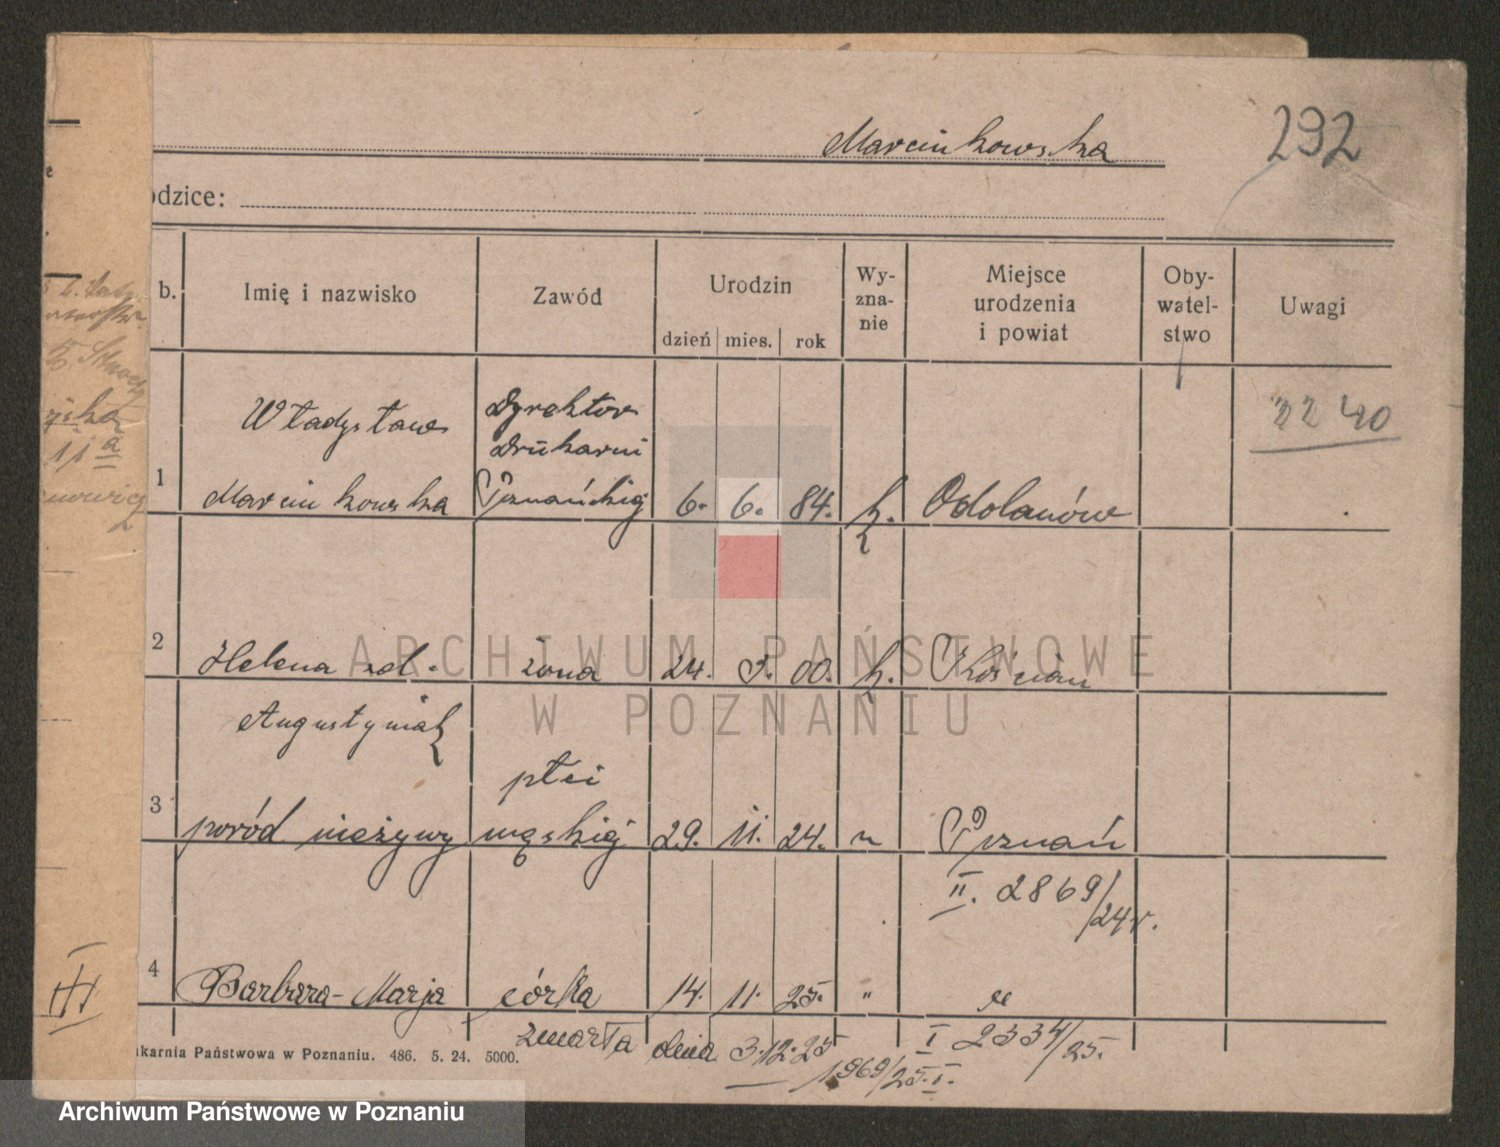 Marcinkowska
292
odzice:
b. Imię i nazwisko Zawód Urodzin dzień mies. rok Wy-zna-nie Miejsce urodzenia i powiat Oby-watel-stwo Uwagi
Władysław Dyrektor
Drukarni
22 40
1 Marcinkowska Poznańskiej 6. 6. 84. k. Odolanów
2 Helena zd. żona 24. 3. 00. k. Kościan
Augustyniak
płci
3 poród nieżywy męskiej 29. 11. 24. " Poznań
II. 2869/24 r.
4 Barbara-Marja córka 14. 11. 25. " "
zmarła dnia 3.12.25 I 2334/25.
1969/25.I.
ukarnia Państwowa w Poznaniu. 486. 5. 24. 5000.
11a
III
ARCHIWUM PAŃSTWOWE
W POZNANIU
Archiwum Państwowe w Poznaniu